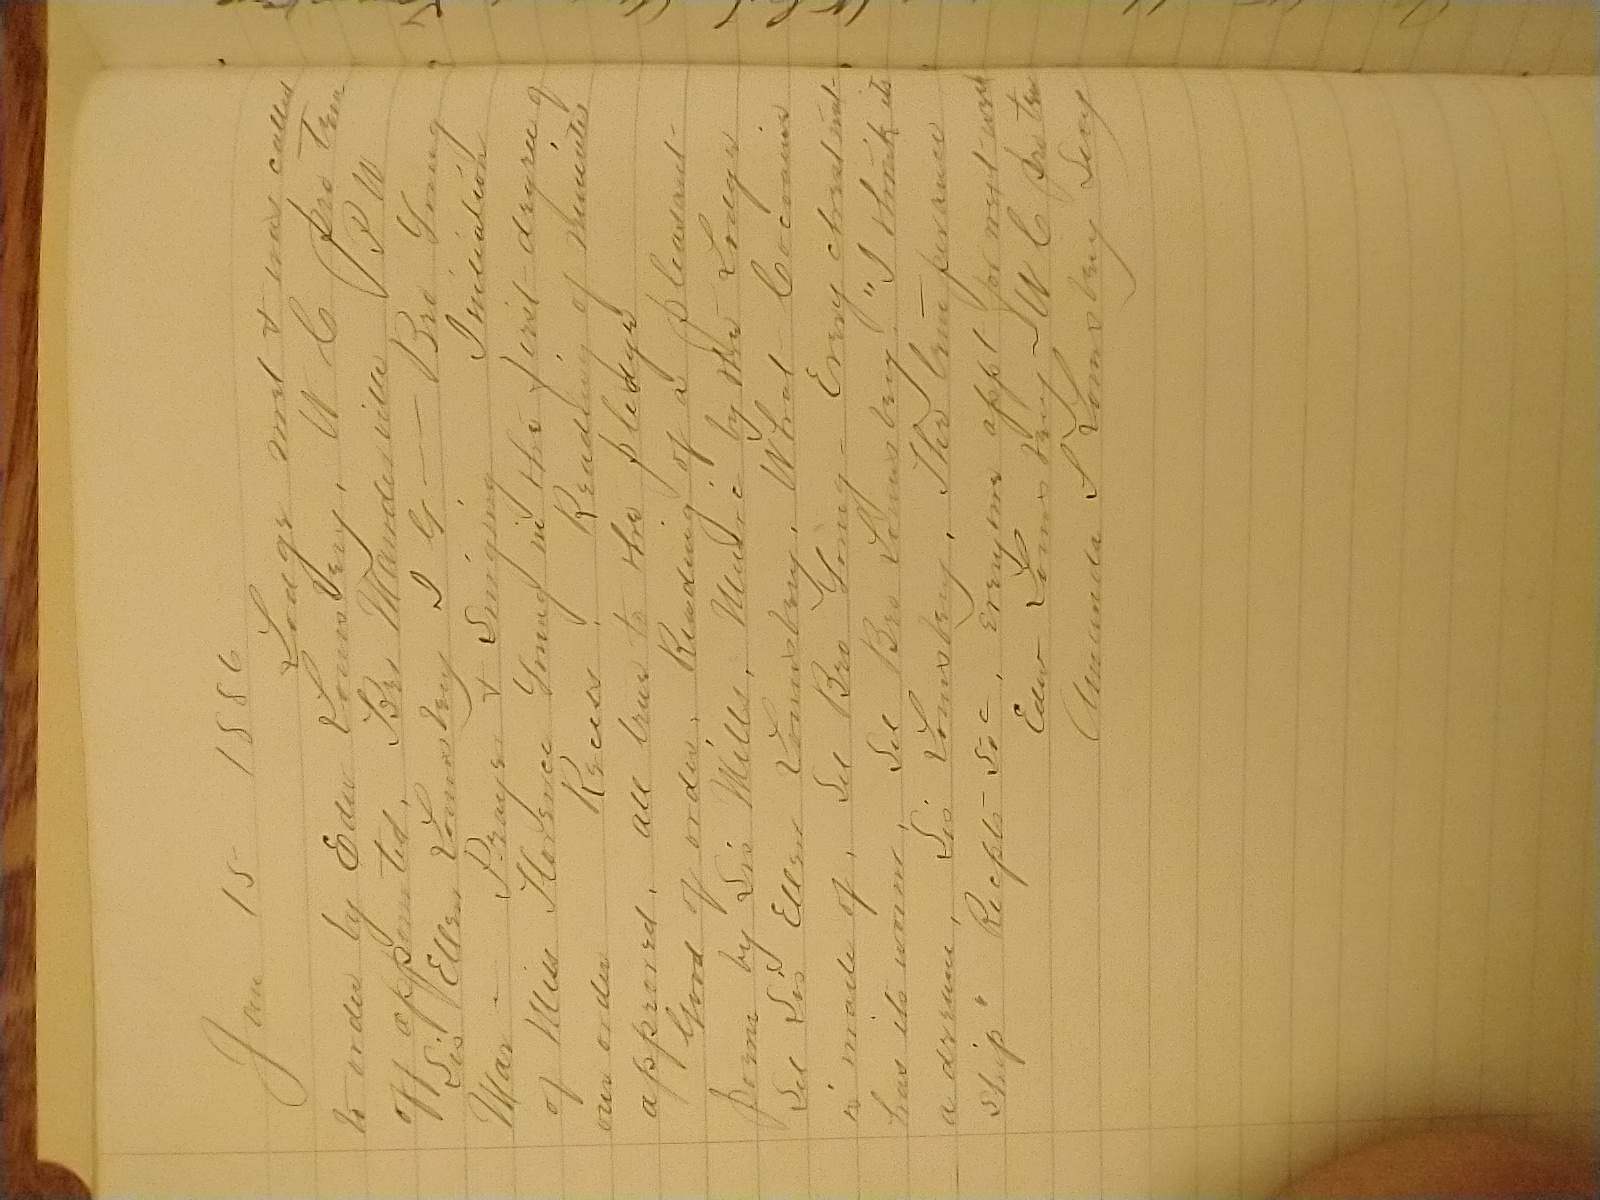 Jan 15 1886
Lodge met & was called
to order by Edw Lounsbery, W C pro tem
off appointed. Bro Mandeville P W
Sis Ellen Lounsbery I G — Bro Young
Mar - Prayer & Singing Initiation
of Miss Florence Young in the first degree of
our order Recess. Reading of minutes
approved. all true to the pledge
Good of order. Reading of a pleasant
poem by Sis Mills. Music by the Lodge
Sel Sis Ellen Lounsbery. What Cocoaine
is made of. Sel Bro Young - Every chestnut
has its worm. Sel Bro Lounsbery. "I think its
a dream, Sis Lounsbery. The temperance
ship" Recpts 50c. everyone appt for next week
Edw Lounsbery - W C pro tem
Amanda S Lounsbery Secy